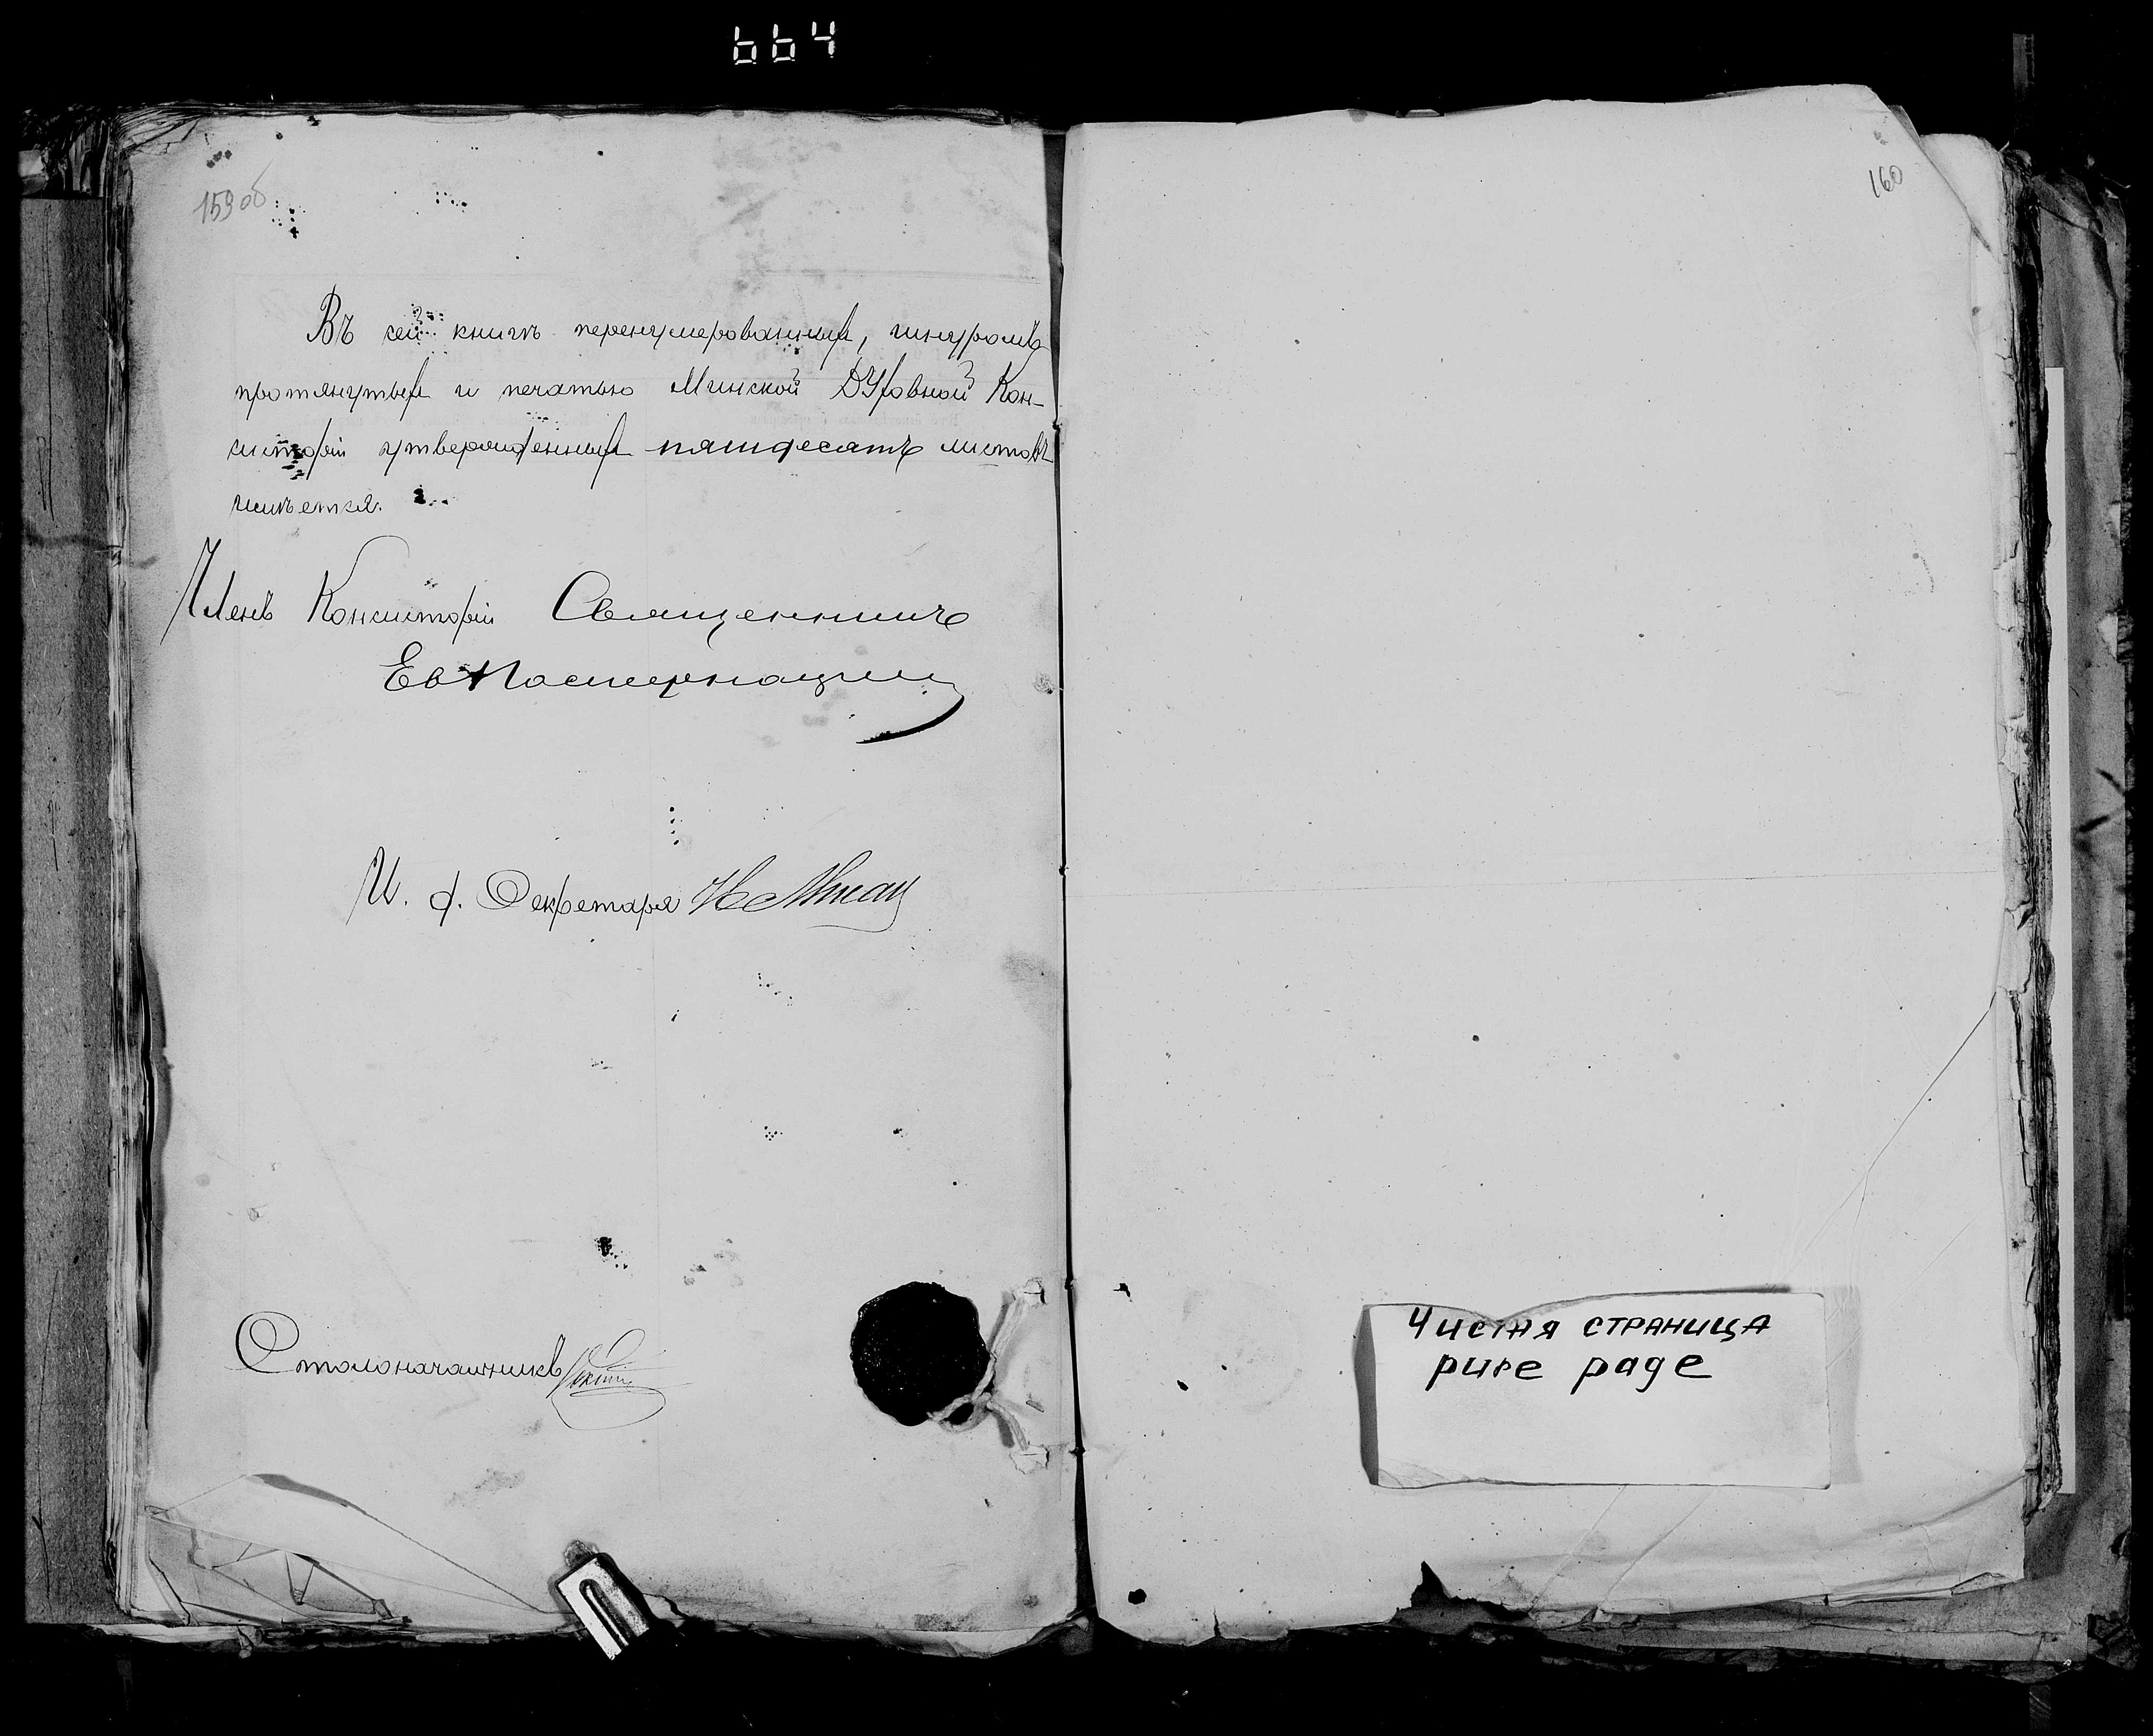 664
159 об
160
Въ сей книгѣ перенумерованныхъ, шнуромъ
протянутыхъ и печатью Минской Духовной Кон-
систоріи утвержденныхъ пятдесятъ листовъ
имѣется.
Членъ Консисторіи Священникъ
Ев Пастернацкій
И. д. Секретаря
Столоначальникъ
Чистая страница
pure page